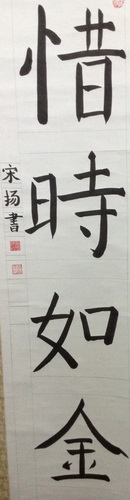 惜時如金
宋扬書